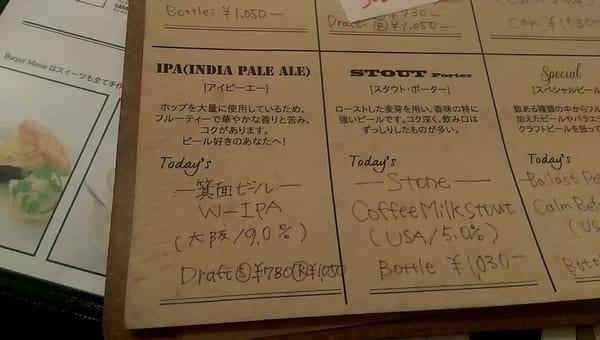 Bottle: ¥1,050—
¥730—
Draft: Ⓡ¥1,050
Can ¥1,030—
Burger Mania はスイーツも全て手作
IPA(INDIA PALE ALE)
[アイピーエー]
ホップを大量に使用しているため、
フルーティーで華やかな香りと苦み、
コクがあります。
ビール好きのあなたへ!
Today's
— 箕面ビール —
W-IPA
(大阪/9.0%)
Draft Ⓢ¥780 Ⓡ¥1,050
STOUT Porter
[スタウト・ポーター]
ローストした麦芽を用い、香味の特に
強いビールです。コク深く、飲み口は
ずっしりしたものが多い。
Today's
— Stone —
Coffee Milk Stout
(USA/5.0%)
Bottle ¥1,030—
Special
[スペシャルビール
数ある種類の中からフル
加えたビールやバラエ
クラフトビールを扱って
Today's
Ballast Po
Calm Be
(US